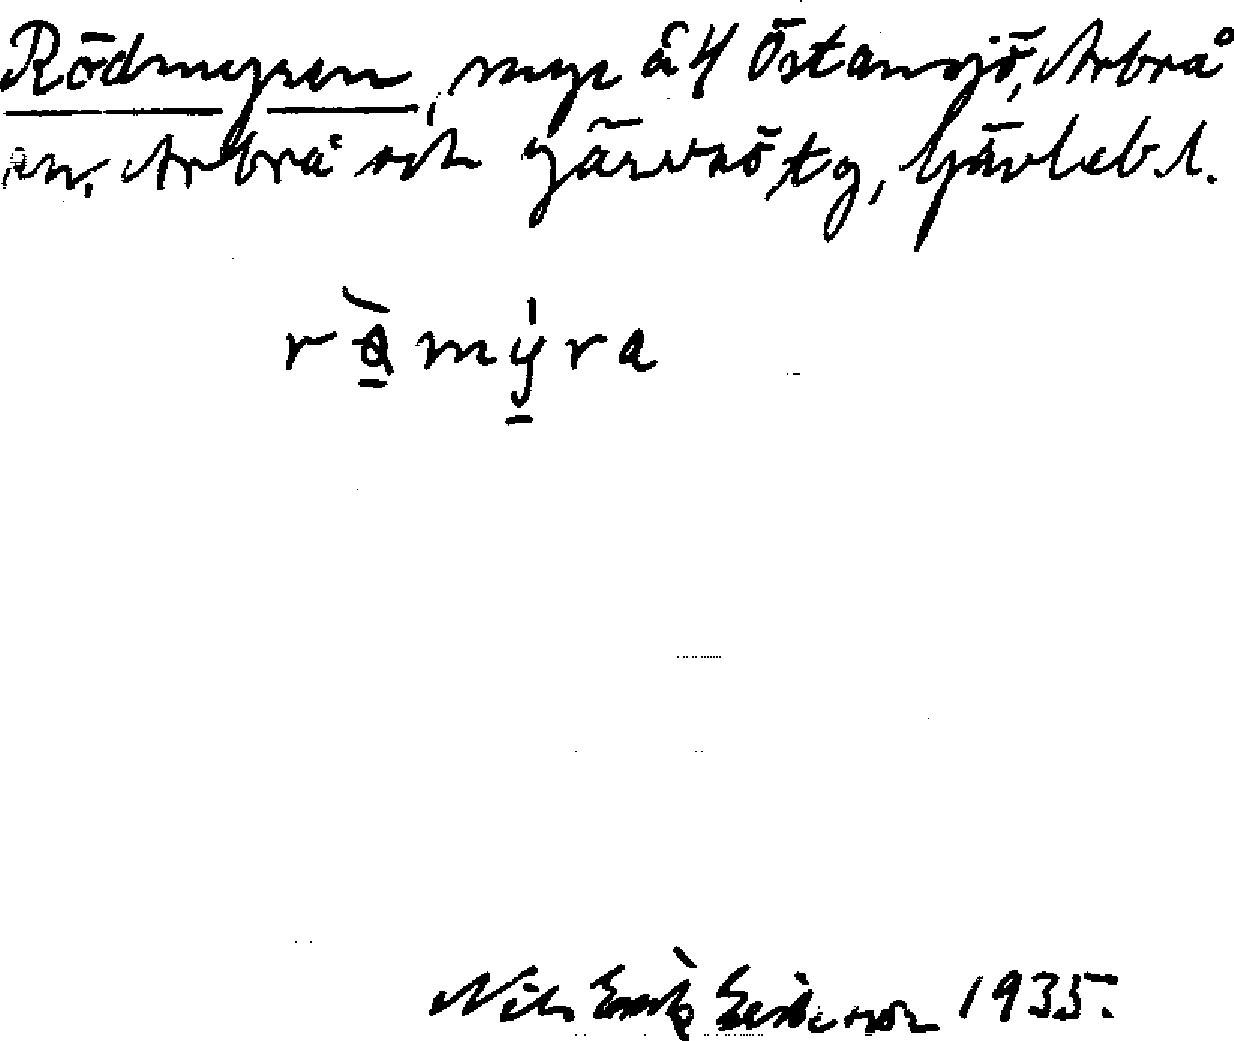 Rödmyren, myr å 4 Östansjö, Arbrå
sn, Arbrå och Järvsö tg, Gävleb. l.
rå̀mýra
Nils Erik Eriksson 1935.